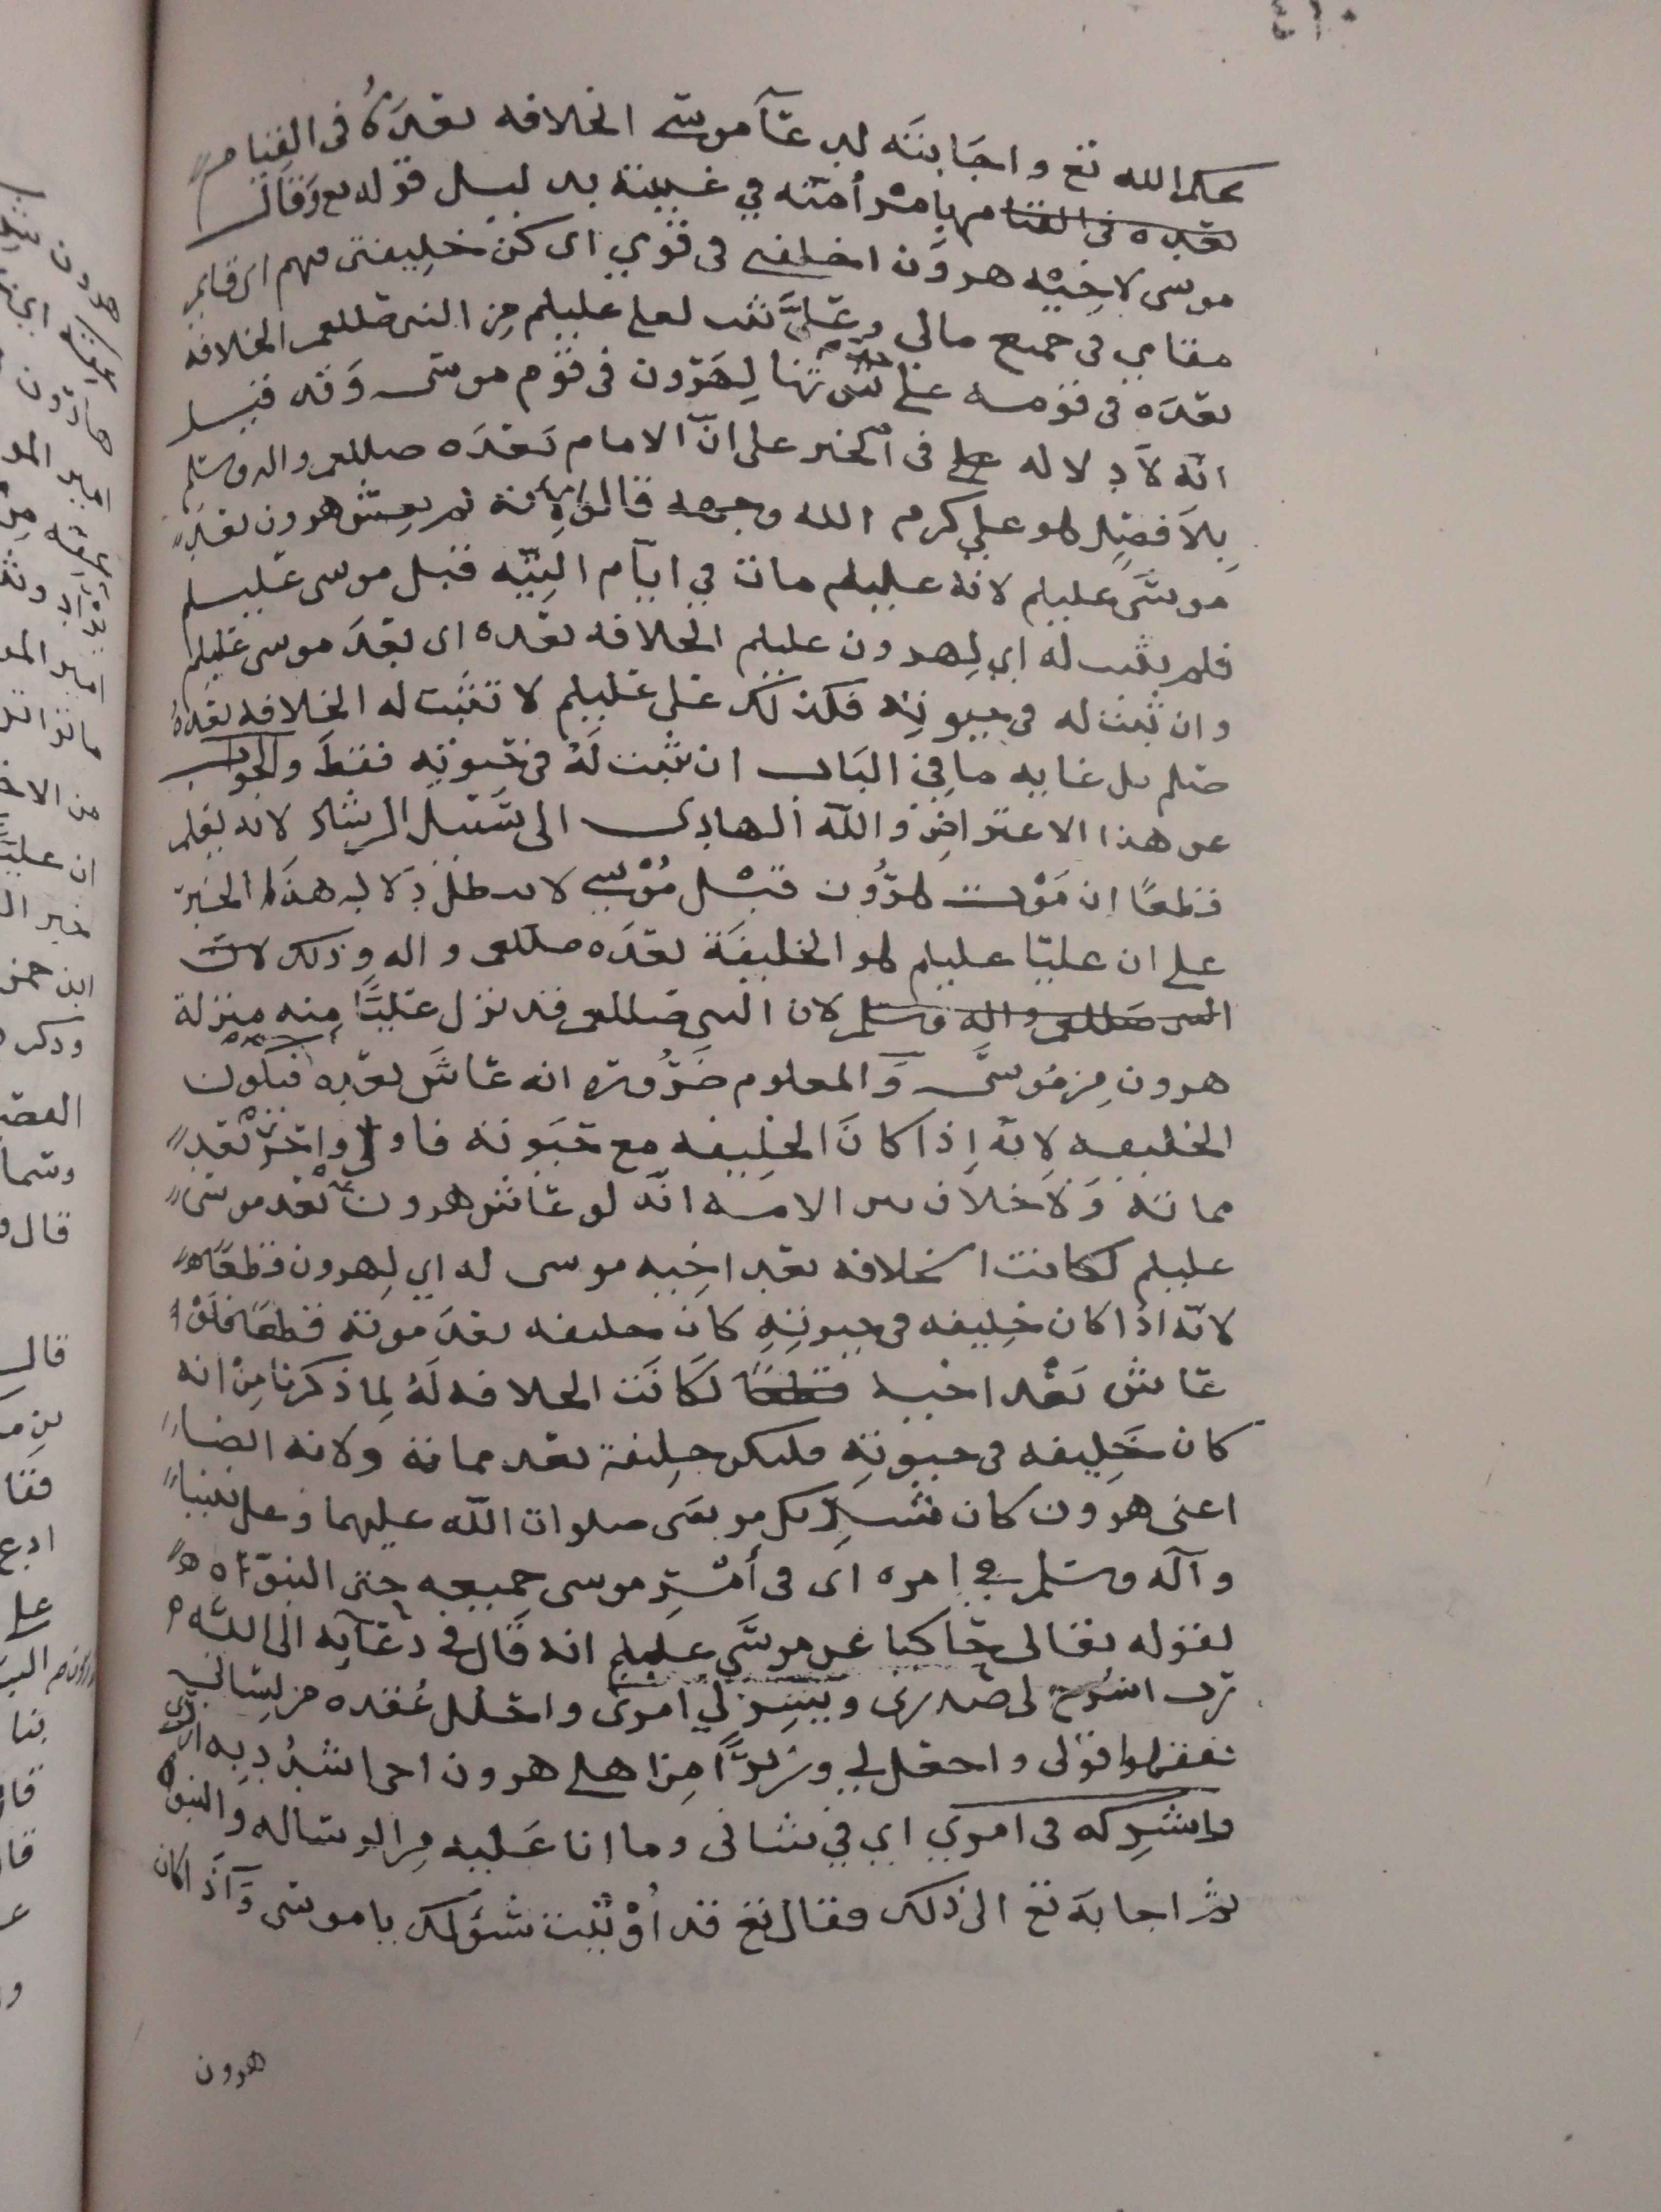 ٤١٠
بحكم الله تع واجابته لدعآ موسى الخلافه بعده في القيام
بعده في القيام مهما مر أمته في غيبته بدليل قوله تع وقال
موسى لاخيه هرون اخلفني في قومي اي كن خليفتي فيهم اي قايم
مقامي في جميع مالي وعليّ ثبت لعلي عليلم من النبي صللعم الخلافه
بعده في قومه على حد ثبوتها لهرون في قوم موسى وقد قيل
انه لا دلاله على في الخبر على انّ الامام بعده صللعم واله وسلم
بلا فصل هو علي كرم الله وجهه قالوا لانه لم يعش هرون بعد
موسى عليلم لانه عليلم مات في ايام التيه قبل موسى عليلم
فلم يثبت له اي لهرون عليلم الخلافه بعده اي بعد موسى عليلم
وان ثبت له في حيوته فكذلك علي عليلم لا تثبت له الخلافه بعده
صلم بل غايه ما في الباب ان تثبت له في حيوته فقط والجواب
عن هذا الاعتراض والله الهادي الى سبيل الرشاد لانه يعلم
قطعًا ان موت هرون قبل موسى لا يبطل دلاله هذا الخبر
على ان عليّا عليلم هو الخليفة بعده صللعم واله وذلك لان
النبي صللعم واله وسلم لان النبي صللعم قد نزل عليًّا منه منزلة
هرون من موسى والمعلوم ضرورة انه عاش بعده فيكون
الخليفه لانه اذا كان الخليفه مع حيوته فاولى واحرى بعد
مماته ولا خلاف بين الامه انه لو عاش هرون بعد موسى
عليلم لكانت الخلافه بعد اخيه موسى له اي لهرون قطعًا
لانه اذا كان خليفه في حيوته كان خليفه بعد موته قطعًا فلو
عاش بعد اخيه قطعًا لكانت الخلافه له لما ذكرنا من انه
كان خليفه في حيوته فليكن خليفة بعد مماته ولانه ايضا
اعني هرون كان شريك موسى صلوات الله عليهما وعلى نبينا
وآله وسلم في امره اي في أمر موسى جميعه حتى النبوّه
لقوله تعالى حاكيا عن موسى عليلم انه قال في دعآيه الى الله
رب اشرح لي صدري ويسر لي امري واحلل عقده من لساني
يفقهوا قولي واجعل لي وزيرًا من اهلي هرون اخي اشدد به ازري
واشركه في امري اي في شاني وما انا عليه من الرساله والنبوه
ثم اجابه تع الى ذلك فقال تع قد أوتيت سؤلك ياموسى وآذا كان
هرون